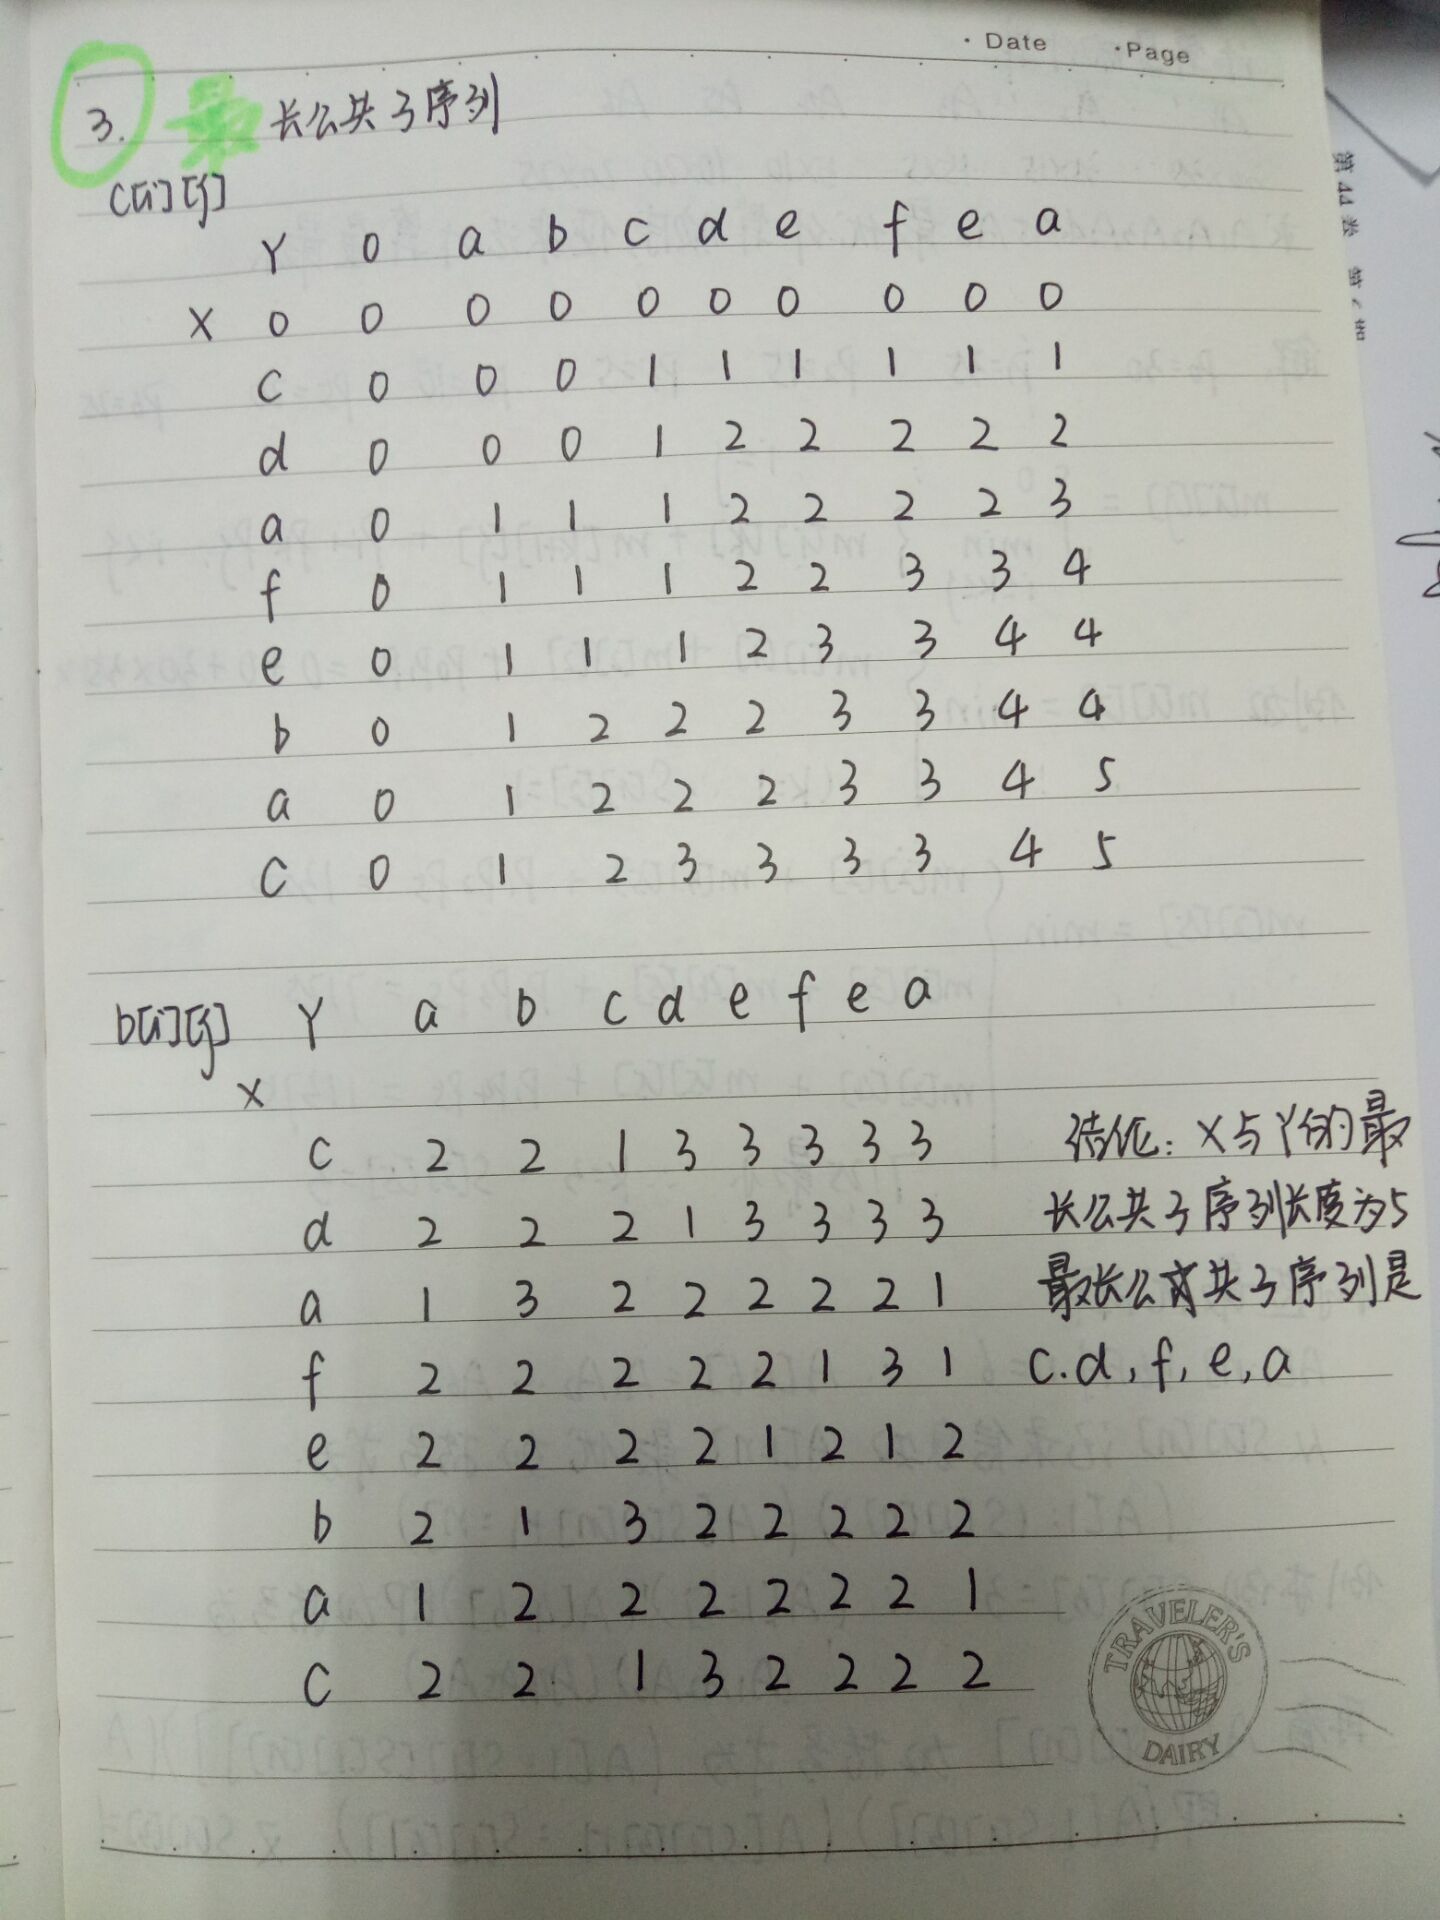 · Date ·Page
3. 最长公共子序列
C[i][j]
Y 0 a b c d e f e a
X 0 0 0 0 0 0 0 0 0 0
c 0 0 0 1 1 1 1 1 1
d 0 0 0 1 2 2 2 2 2
a 0 1 1 1 2 2 2 2 3
f 0 1 1 1 2 2 3 3 4
e 0 1 1 1 2 3 3 4 4
b 0 1 2 2 2 3 3 4 4
a 0 1 2 2 2 3 3 4 5
c 0 1 2 3 3 3 3 4 5
b[i][j] Y a b c d e f e a
X
c 2 2 1 3 3 3 3 3
d 2 2 2 1 3 3 3 3
a 1 3 2 2 2 2 2 1
f 2 2 2 2 2 1 3 1
e 2 2 2 2 1 2 1 2
b 2 1 3 2 2 2 2 2
a 1 2 2 2 2 2 2 1
c 2 2 1 3 2 2 2 2
结论: X与Y的最
长公共子序列长度为5
最长公共子序列是
c.d,f,e,a
TRAVELER'S
DAIRY